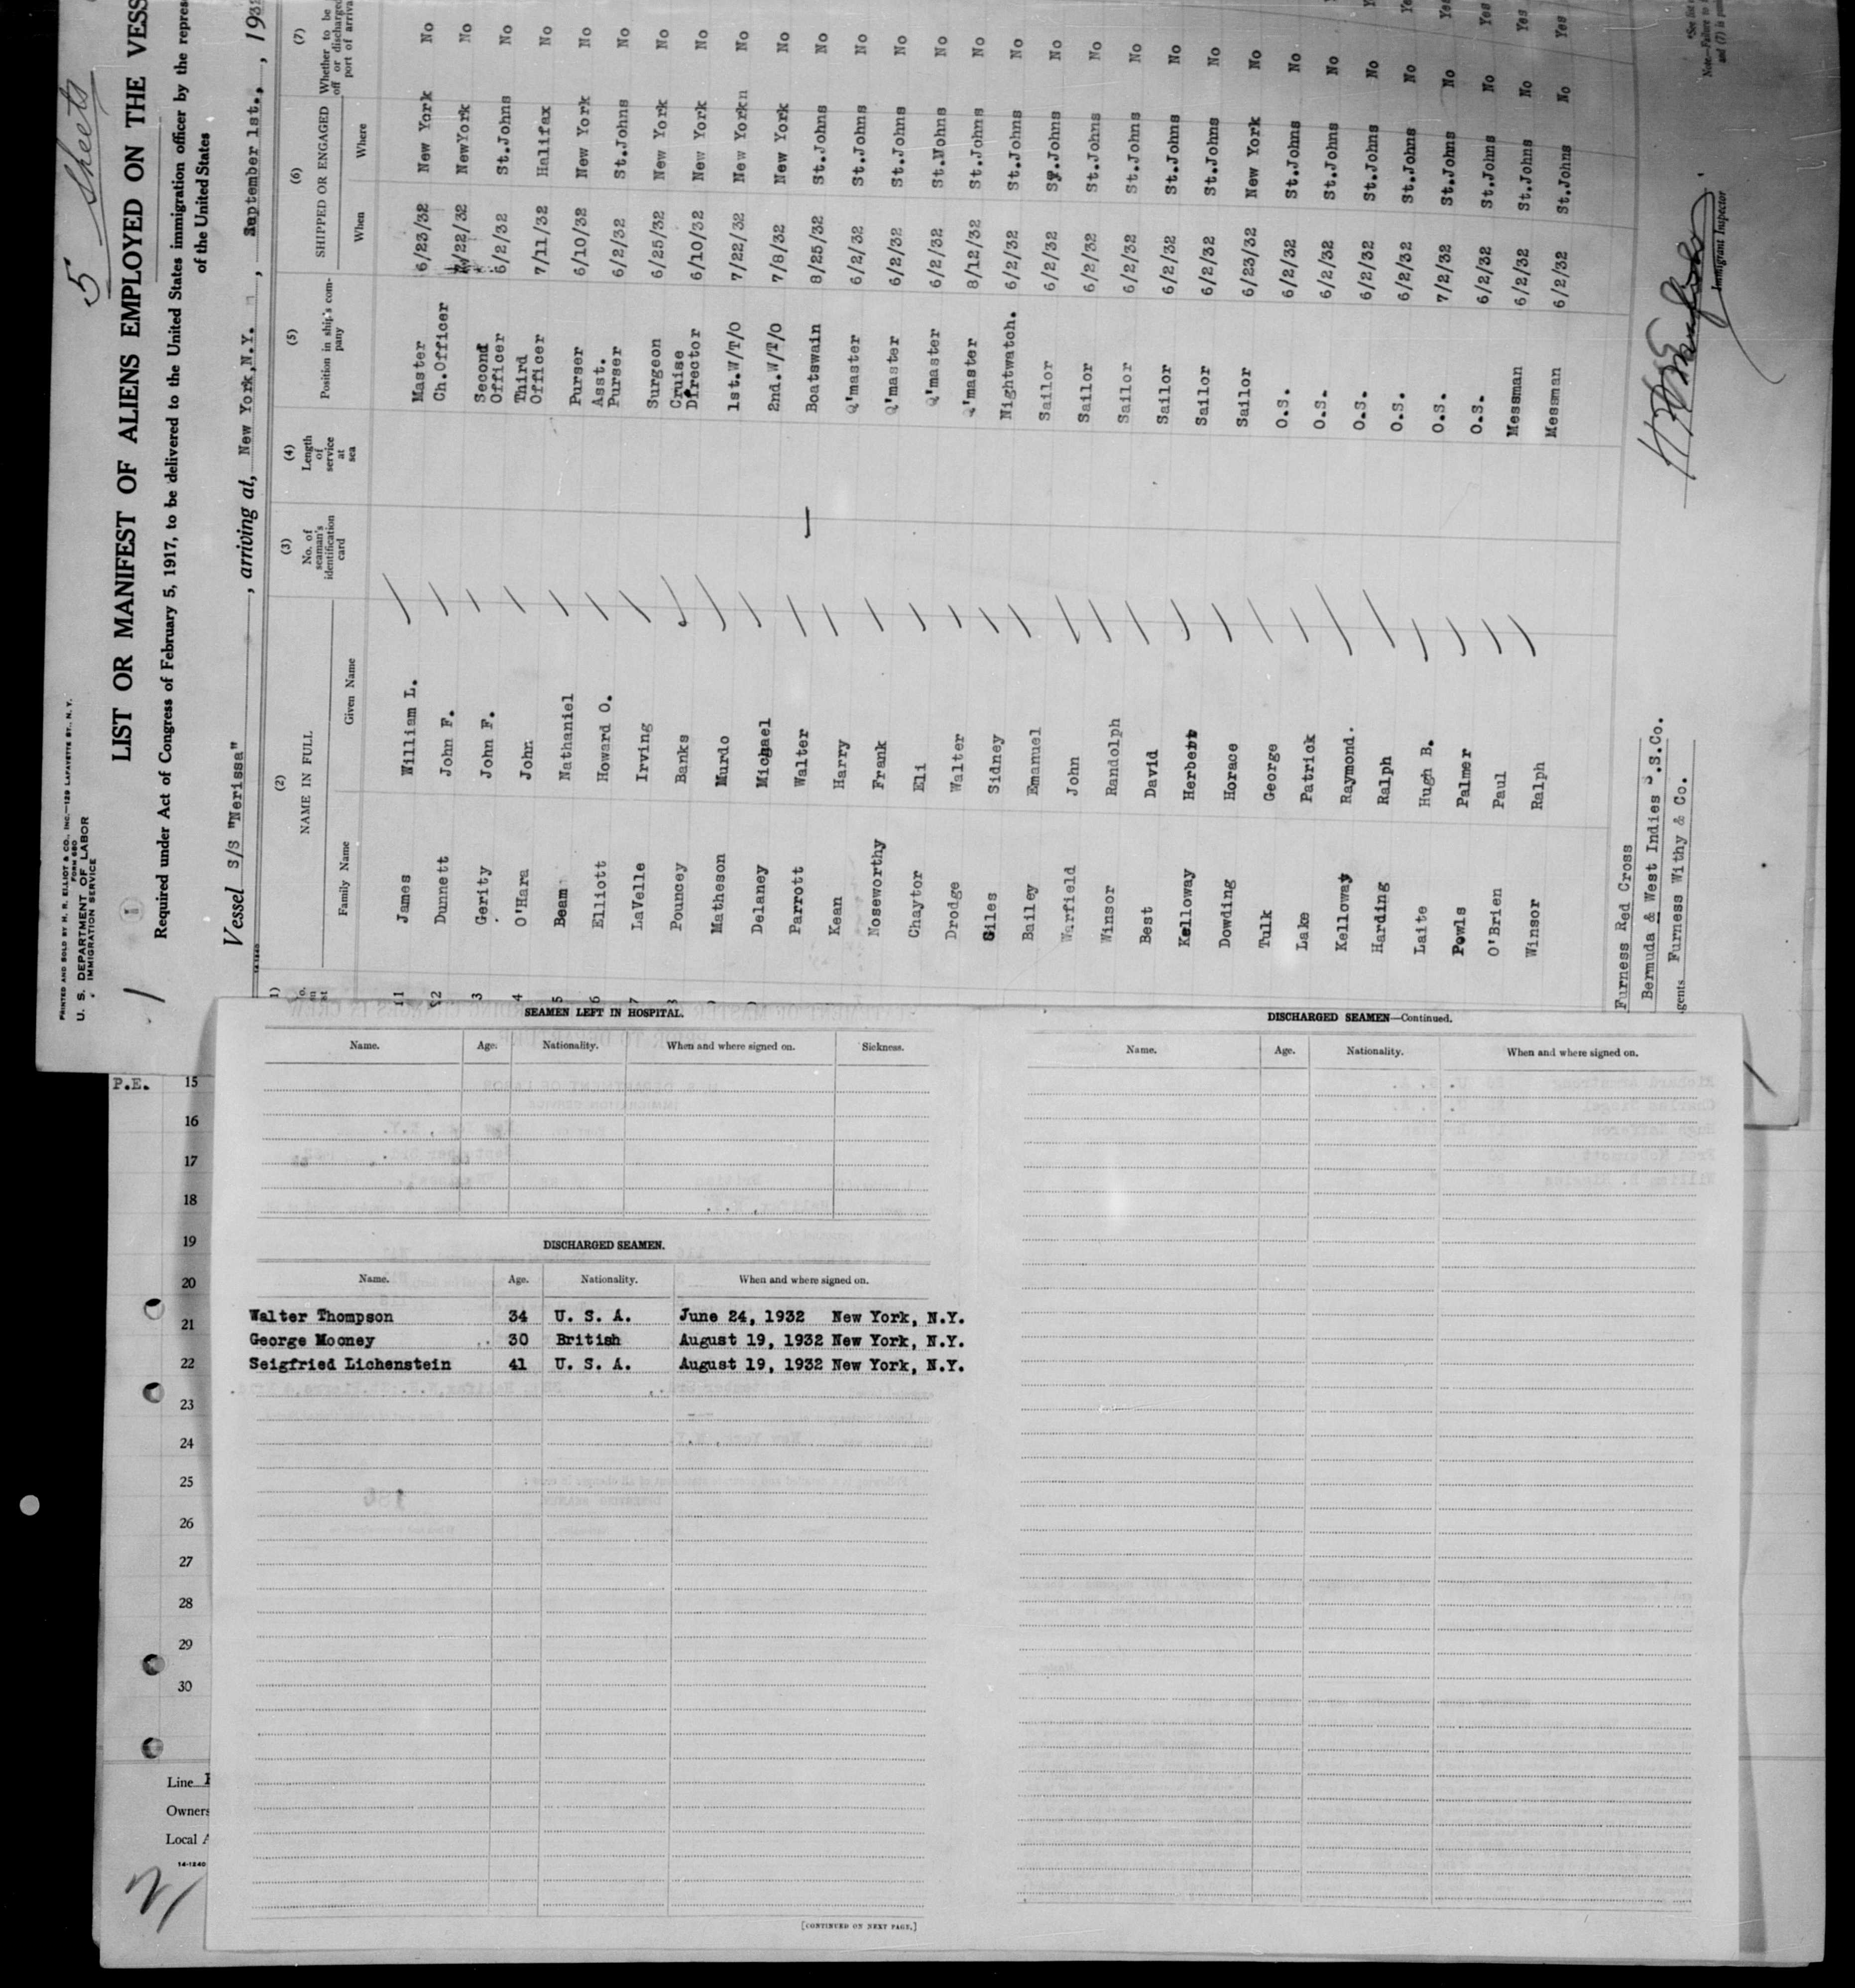 5 Sheets
PRINTED AND SOLD BY H. R. ELLIOT & CO., INC.—129 LAFAYETTE ST., N. Y.
FORM 680
U. S. DEPARTMENT OF LABOR
IMMIGRATION SERVICE
LIST OR MANIFEST OF ALIENS EMPLOYED ON THE VESS
Required under Act of Congress of February 5, 1917, to be delivered to the United States immigration officer by the repres
of the United States
Vessel S/S "Nerissa", arriving at, New York,N.Y., September 1st., 193
(2) (3) (4) (5) (6) (7)
NAME IN FULL No. of seaman's identification card Length of service at sea Position in ship's company SHIPPED OR ENGAGED Whether to be off or discharged port of arriva
Family Name Given Name When Where
James William L. Master 6/23/32 New York No
Dunnett John F. Ch.Officer /22/32 NewYork No
3 Gerity John F. Second Officer 6/2/32 St.Johns No
4 O'Hara John Third Officer 7/11/32 Halifax No
5 Beam Nathaniel Purser 6/10/32 New York No
6 Elliott Howard O. Asst. Purser 6/2/32 St.Johns No
7 LaVelle Irving Surgeon 6/25/32 New York No
Pouncey Banks Cruise Director 6/10/32 New York No
Matheson Murdo 1st.W/T/O 7/22/32 New Yorkn No
Delaney Michael 2nd.W/T/O 7/8/32 New York No
Parrott Walter Boatswain 8/25/32 St.Johns No
Kean Harry Q'master 6/2/32 St.Johns No
Noseworthy Frank Q'master 6/2/32 St.Johns No
Chaytor Eli Q'master 6/2/32 St.Nohns No
Drodge Walter Q'master 8/12/32 St.Johns No
Giles Sidney Nightwatch. 6/2/32 St.Johns No
Bailey Emanuel Sailor 6/2/32 St.Johns No
Warfield John Sailor 6/2/32 St.Johns No
Winsor Randolph Sailor 6/2/32 St.Johns No
Best David Sailor 6/2/32 St.Johns No
Kelloway Herbert Sailor 6/2/32 St.Johns No
Dowding Horace Sailor 6/23/32 New York No
Tulk George O.S. 6/2/32 St.Johns No
Lake Patrick O.S. 6/2/32 St.Johns No
Kelloway Raymond. O.S. 6/2/32 St.Johns No
Harding Ralph O.S. 6/2/32 St.Johns No Yes
Laite Hugh B. O.S. 7/2/32 St.Johns No Yes
Powls Palmer O.S. 6/2/32 St.Johns No Yes
O'Brien Paul Messman 6/2/32 St.Johns No Yes
Winsor Ralph Messman 6/2/32 St.Johns No Yes
Furness Red Cross
Bermuda & West Indies S.S.Co.
gents Furness Withy & Co.
Immigrant Inspector
P.E.
15
16
17
18
19
20
21
22
23
24
25
26
27
28
29
30
Line
Owners
Local A
14-1240
2
SEAMEN LEFT IN HOSPITAL.
Name. Age. Nationality. When and where signed on. Sickness.
DISCHARGED SEAMEN.
Name. Age. Nationality. When and where signed on.
Walter Thompson 34 U. S. A. June 24, 1932 New York, N.Y.
George Mooney 30 British August 19, 1932 New York, N.Y.
Seigfried Lichenstein 41 U. S. A. August 19, 1932 New York, N.Y.
[CONTINUED ON NEXT PAGE.]
DISCHARGED SEAMEN—Continued.
Name. Age. Nationality. When and where signed on.